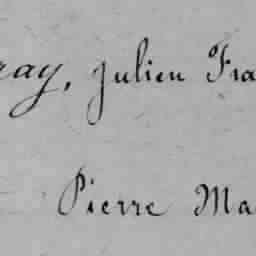 ray, Julien Fra
Pierre Ma